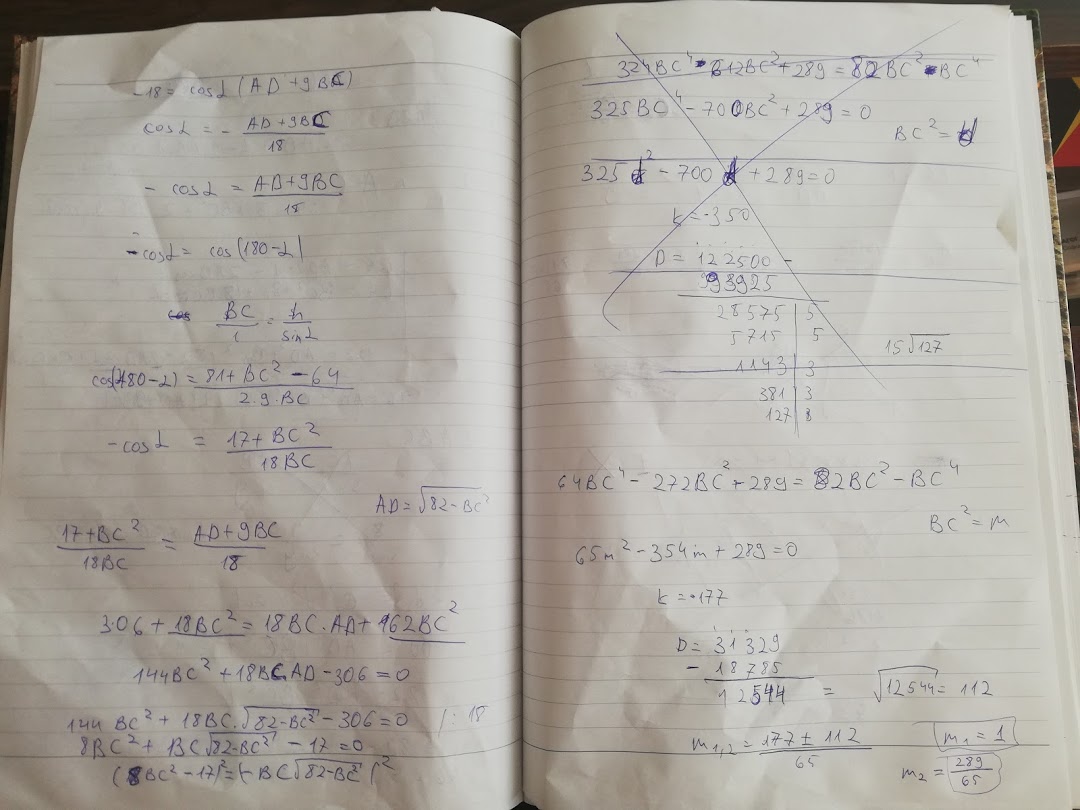 -18 = cosα(AD + 9BC)
cosα = - AD+9BC / 18
- cosα = AD+9BC / 18
-cosα = cos(180-α)
BC / 1 = h / sinα
cos(180-α) = 81 + BC² - 64 / 2·9·BC
-cosα = 17 + BC² / 18BC
AD = √82-BC²
17+BC² / 18BC = AD+9BC / 18
306 + 18BC² = 18BC·AD + 162BC²
144BC² + 18BC·AD - 306 = 0
144 BC² + 18BC·√82-BC² - 306 = 0 /: 18
8BC² + BC√82-BC² - 17 = 0
(8BC² - 17)² = (-BC√82-BC²)²
324BC⁴ - 612BC² + 289 = 82BC² - BC⁴
325BC⁴ - 700BC² + 289 = 0
BC² =
325 ² - 700 + 289 = 0
k = -350
D = 122500 -
93925
28575 | 5
5715 | 5
15√127
1143 | 3
381 | 3
127
64BC⁴ - 272BC² + 289 = 82BC² - BC⁴
BC² = m
65m² - 354m + 289 = 0
k = -177
D = 31329
- 18785
12544 = √12544 = 112
m₁,₂ = 177 ± 112 / 65
m₁ = 1
m₂ = 289 / 65